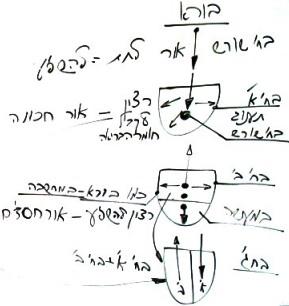 בורא
בח' שורש אור לתת = להשפיע
בח' א'
רצון = אור חכמה
תענוג
בח' שורש
חומר הבריאה
בח' ב'
כמו בורא - במחשבה
רצון להשפיע - אור חסדים
בח' ג'
בח' א' + בח' ב'
ב' א'